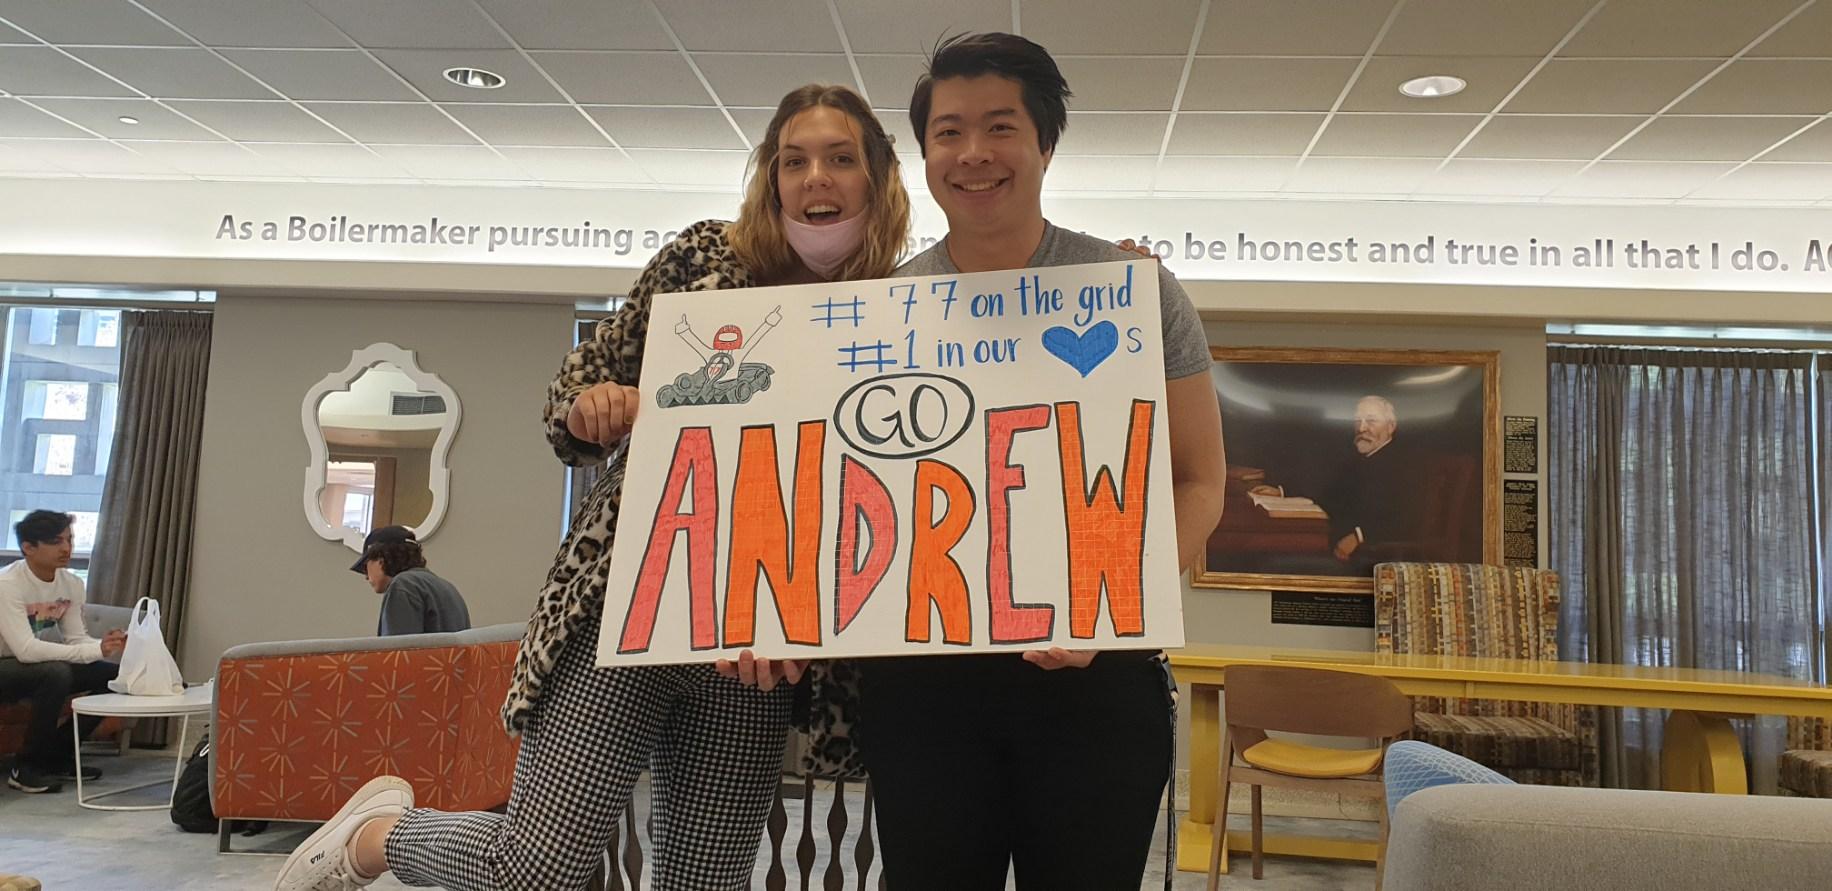 As a Boilermaker pursuing to be honest and true in all that I do.
# 77 on the grid
#1 in our s
GO
ANDREW
FILA